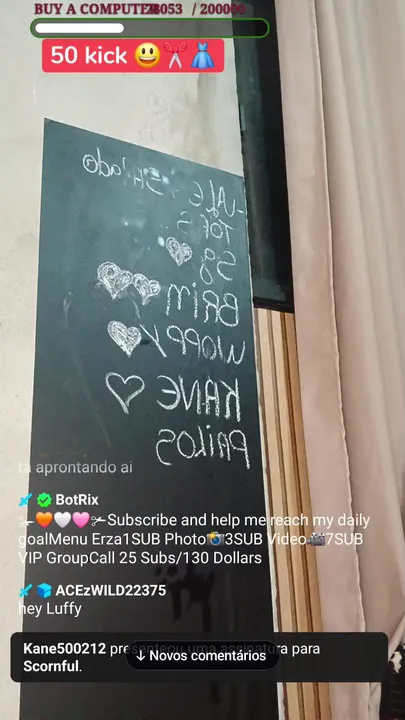 BUY A COMPUTER 78053 / 200000
50 kick 😃✂️👗
VALE
TOFS
S8
BRIM
WOPPY
KANE
PAILOS
tá aprontando ai
BotRix
✂🧡🤍🩷✂Subscribe and help me reach my daily
goalMenu Erza1SUB Photo📸3SUB Video📹7SUB
VIP GroupCall 25 Subs/130 Dollars
ACEzWILD22375
hey Luffy
Kane500212 presenteou uma assinatura para
Scornful.
↓ Novos comentários